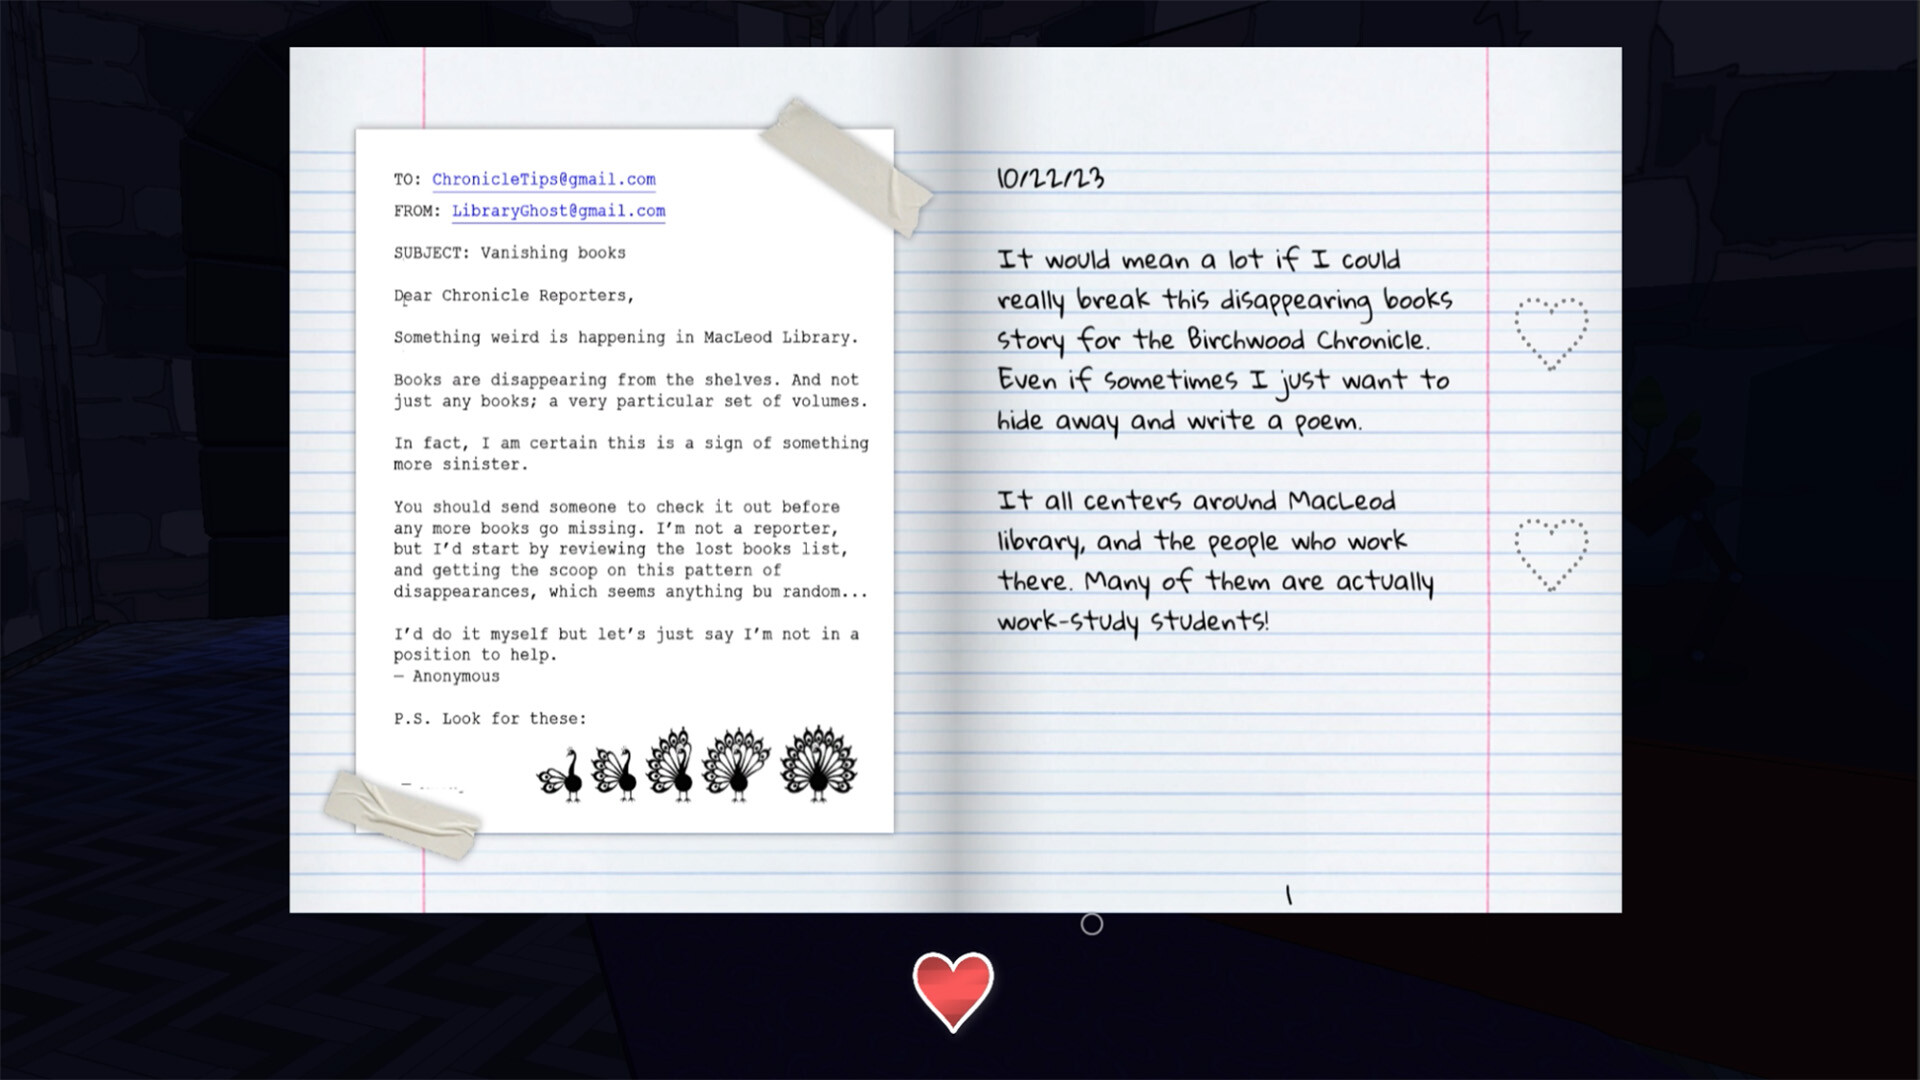 TO: ChronicleTips@gmail.com
FROM: LibraryGhost@gmail.com
SUBJECT: Vanishing books
Dear Chronicle Reporters,
Something weird is happening in MacLeod Library.
Books are disappearing from the shelves. And not
just any books; a very particular set of volumes.
In fact, I am certain this is a sign of something
more sinister.
You should send someone to check it out before
any more books go missing. I'm not a reporter,
but I'd start by reviewing the lost books list,
and getting the scoop on this pattern of
disappearances, which seems anything bu random...
I'd do it myself but let's just say I'm not in a
position to help.
– Anonymous
P.S. Look for these:
10/22/23
It would mean a lot if I could
really break this disappearing books
story for the Birchwood Chronicle.
Even if sometimes I just want to
hide away and write a poem.
It all centers around MacLeod
library, and the people who work
there. Many of them are actually
work-study students!
1